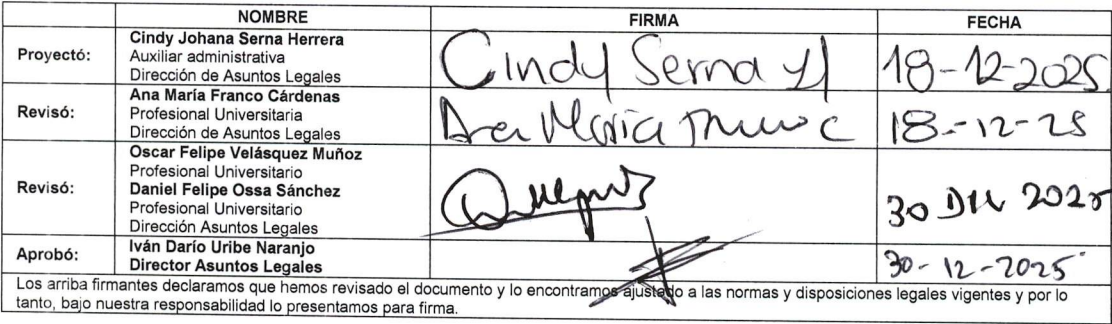 NOMBRE FIRMA FECHA
Proyectó: Cindy Johana Serna Herrera
Auxiliar administrativa
Dirección de Asuntos Legales
Cindy Serna H 18-12-2025.
Revisó: Ana María Franco Cárdenas
Profesional Universitaria
Dirección de Asuntos Legales
Ana María 18-12-25
Revisó: Oscar Felipe Velásquez Muñoz
Profesional Universitario
Daniel Felipe Ossa Sánchez
Profesional Universitario
Dirección Asuntos Legales
30 DIC 2025
Aprobó: Iván Darío Uribe Naranjo
Director Asuntos Legales
30-12-2025
Los arriba firmantes declaramos que hemos revisado el documento y lo encontramos ajustado a las normas y disposiciones legales vigentes y por lo
tanto, bajo nuestra responsabilidad lo presentamos para firma.